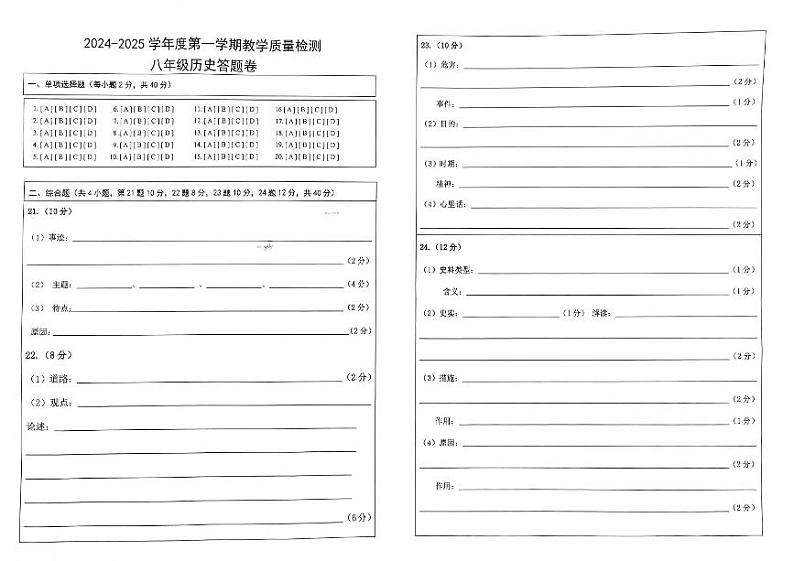 2024-2025学年度第一学期教学质量检测
八年级历史答题卷
一、单项选择题（每小题2分，共40分）
1.[A][B][C][D] 6.[A][B][C][D] 11.[A][B][C][D] 16.[A][B][C][D]
2.[A][B][C][D] 7.[A][B][C][D] 12.[A][B][C][D] 17.[A][B][C][D]
3.[A][B][C][D] 8.[A][B][C][D] 13.[A][B][C][D] 18.[A][B][C][D]
4.[A][B][C][D] 9.[A][B][C][D] 14.[A][B][C][D] 19.[A][B][C][D]
5.[A][B][C][D] 10.[A][B][C][D] 15.[A][B][C][D] 20.[A][B][C][D]
二、综合题（共4小题，第21题10分，22题8分，23题10分，24题12分，共40分）
21.（10分）
（1）事迹：
（2分）
（2） 主题： 、 、 、 （4分）
（3） 特点： （2分）
原因： （2分）
22.（8分）
（1）道路： （2分）
（2）观点：
论述：
（6分）
23.（10分）
（1）危害：
（2分）
事件： （1分）
（2）目的：
（2分）
（3）时期： （1分）
精神： （2分）
（4）心里话：
（2分）
24.（12分）
（1）史料类型： （1分）
含义： （1分）
（2）史实： （1分） 解读：
（2分）
（3）措施：
（2分）
作用： （1分）
（4）原因：
（2分）
作用：
（2分）